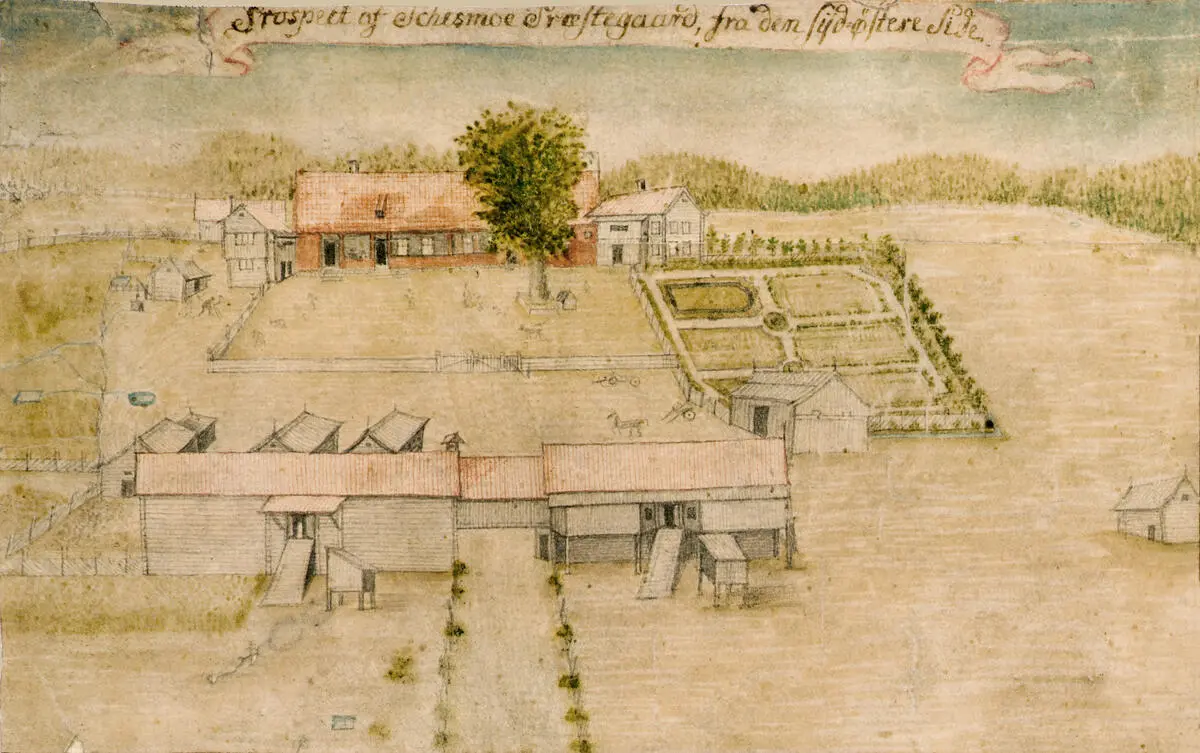 Prospect af Schesmoe Præstegaard, fra den syd-østere Side.